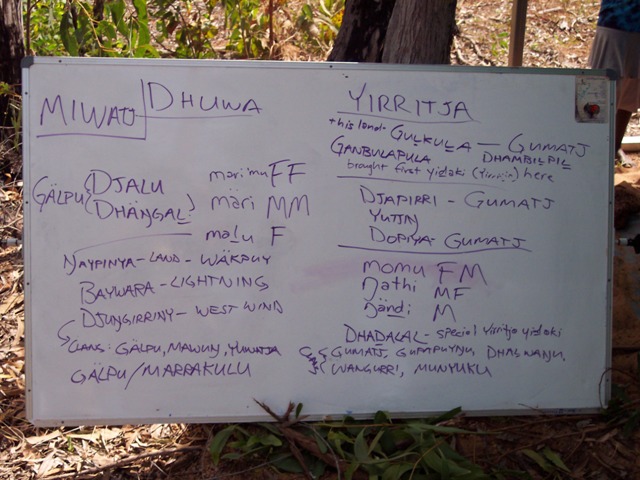 MIWATJ
DHUWA
GÄLPU
(DJALU
(DHÄŊGAL̲
märi'mu FF
märi MM
mal̲u F
ŊAYPINYA-LAND-WÄKPUY
BAYWARA-LIGHTNING
DJUNGIRRINY-WEST WIND
CLANS: GÄLPU, MAWUNY,
GÄLPU/MARRAKULU
YIRRITJA
this land- GUL̲KUL̲A — GUMATJ
GANBULAPULA DHAMBIL̲PIL̲
brought first yidaki (Yirritja) here
DJAPIRRI - GUMATJ
DOPIYA- GUMATJ
momu FM
ŋathi MF
ŋändi M
DHADALAL- special Yirritja yidaki
GUMATJ, GUPAPUYŊU,
WANGURRI, MUNYUKU